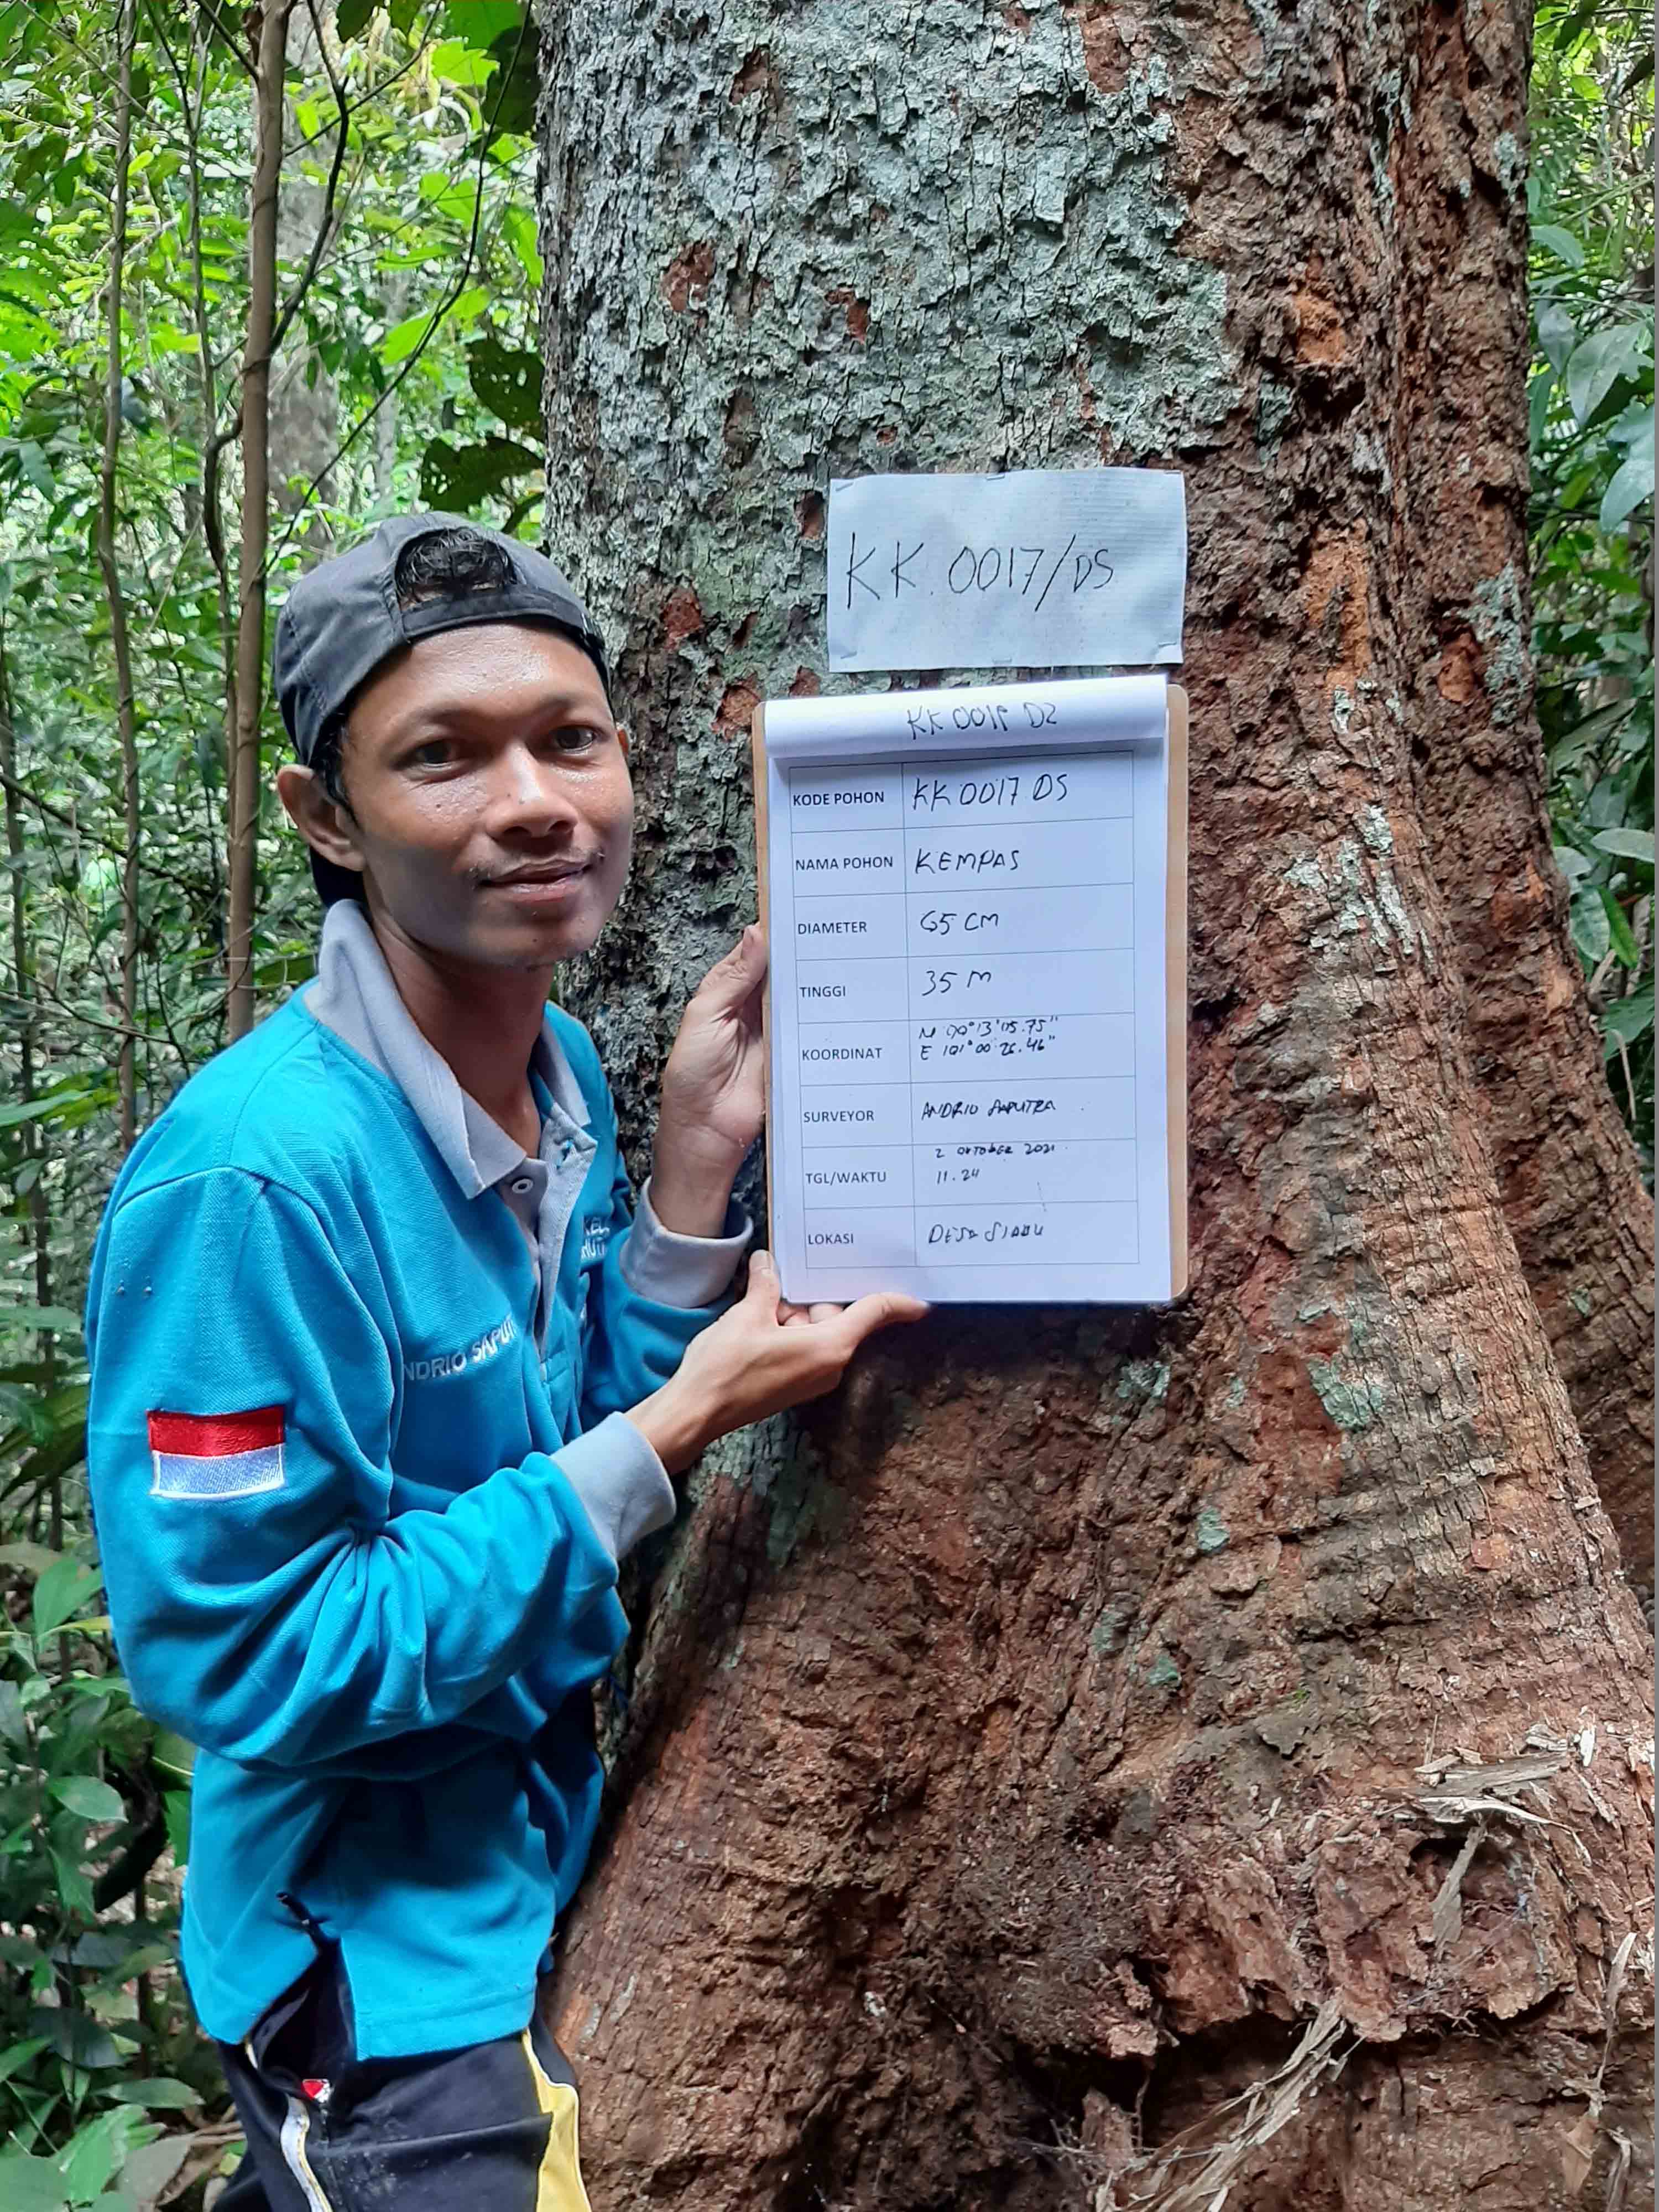 KK.0017/DS
KODE POHON KK 0017 DS
NAMA POHON KEMPAS
DIAMETER 65 CM
TINGGI 35 M
KOORDINAT N 00°13'05.75"
E 101°00'26.46"
SURVEYOR ANDRIO SAPUTRA
TGL/WAKTU 2 OKTOBER 2021
11.24
LOKASI DESA SIABU
NDRIO SAPUT